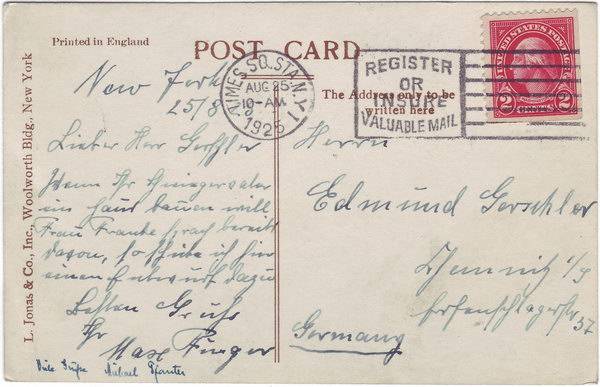 Printed in England
POST CARD
L. Jonas & Co., Inc., Woolworth Bldg., New York
TIMES SQ. STA. N.Y.
AUG 25
10-AM
1925
1
REGISTER
OR
INSURE
VALUABLE MAIL
UNITED STATES POSTAGE
2 CENTS 2
The Address only to be
written here
New York
25/8
Lieber Herr Gerschler
Wenn Ihr Schwiegervater
ein Haus bauen will
Frau Franke sprach bereits
davon, so schicke ich hier
einen Entwurf dazu
Besten Gruß
Ihr
Max Finger
Viele Grüße Michael Pfanter
Herrn
Edmund Gerschler
Chemnitz i/S
37
Germany